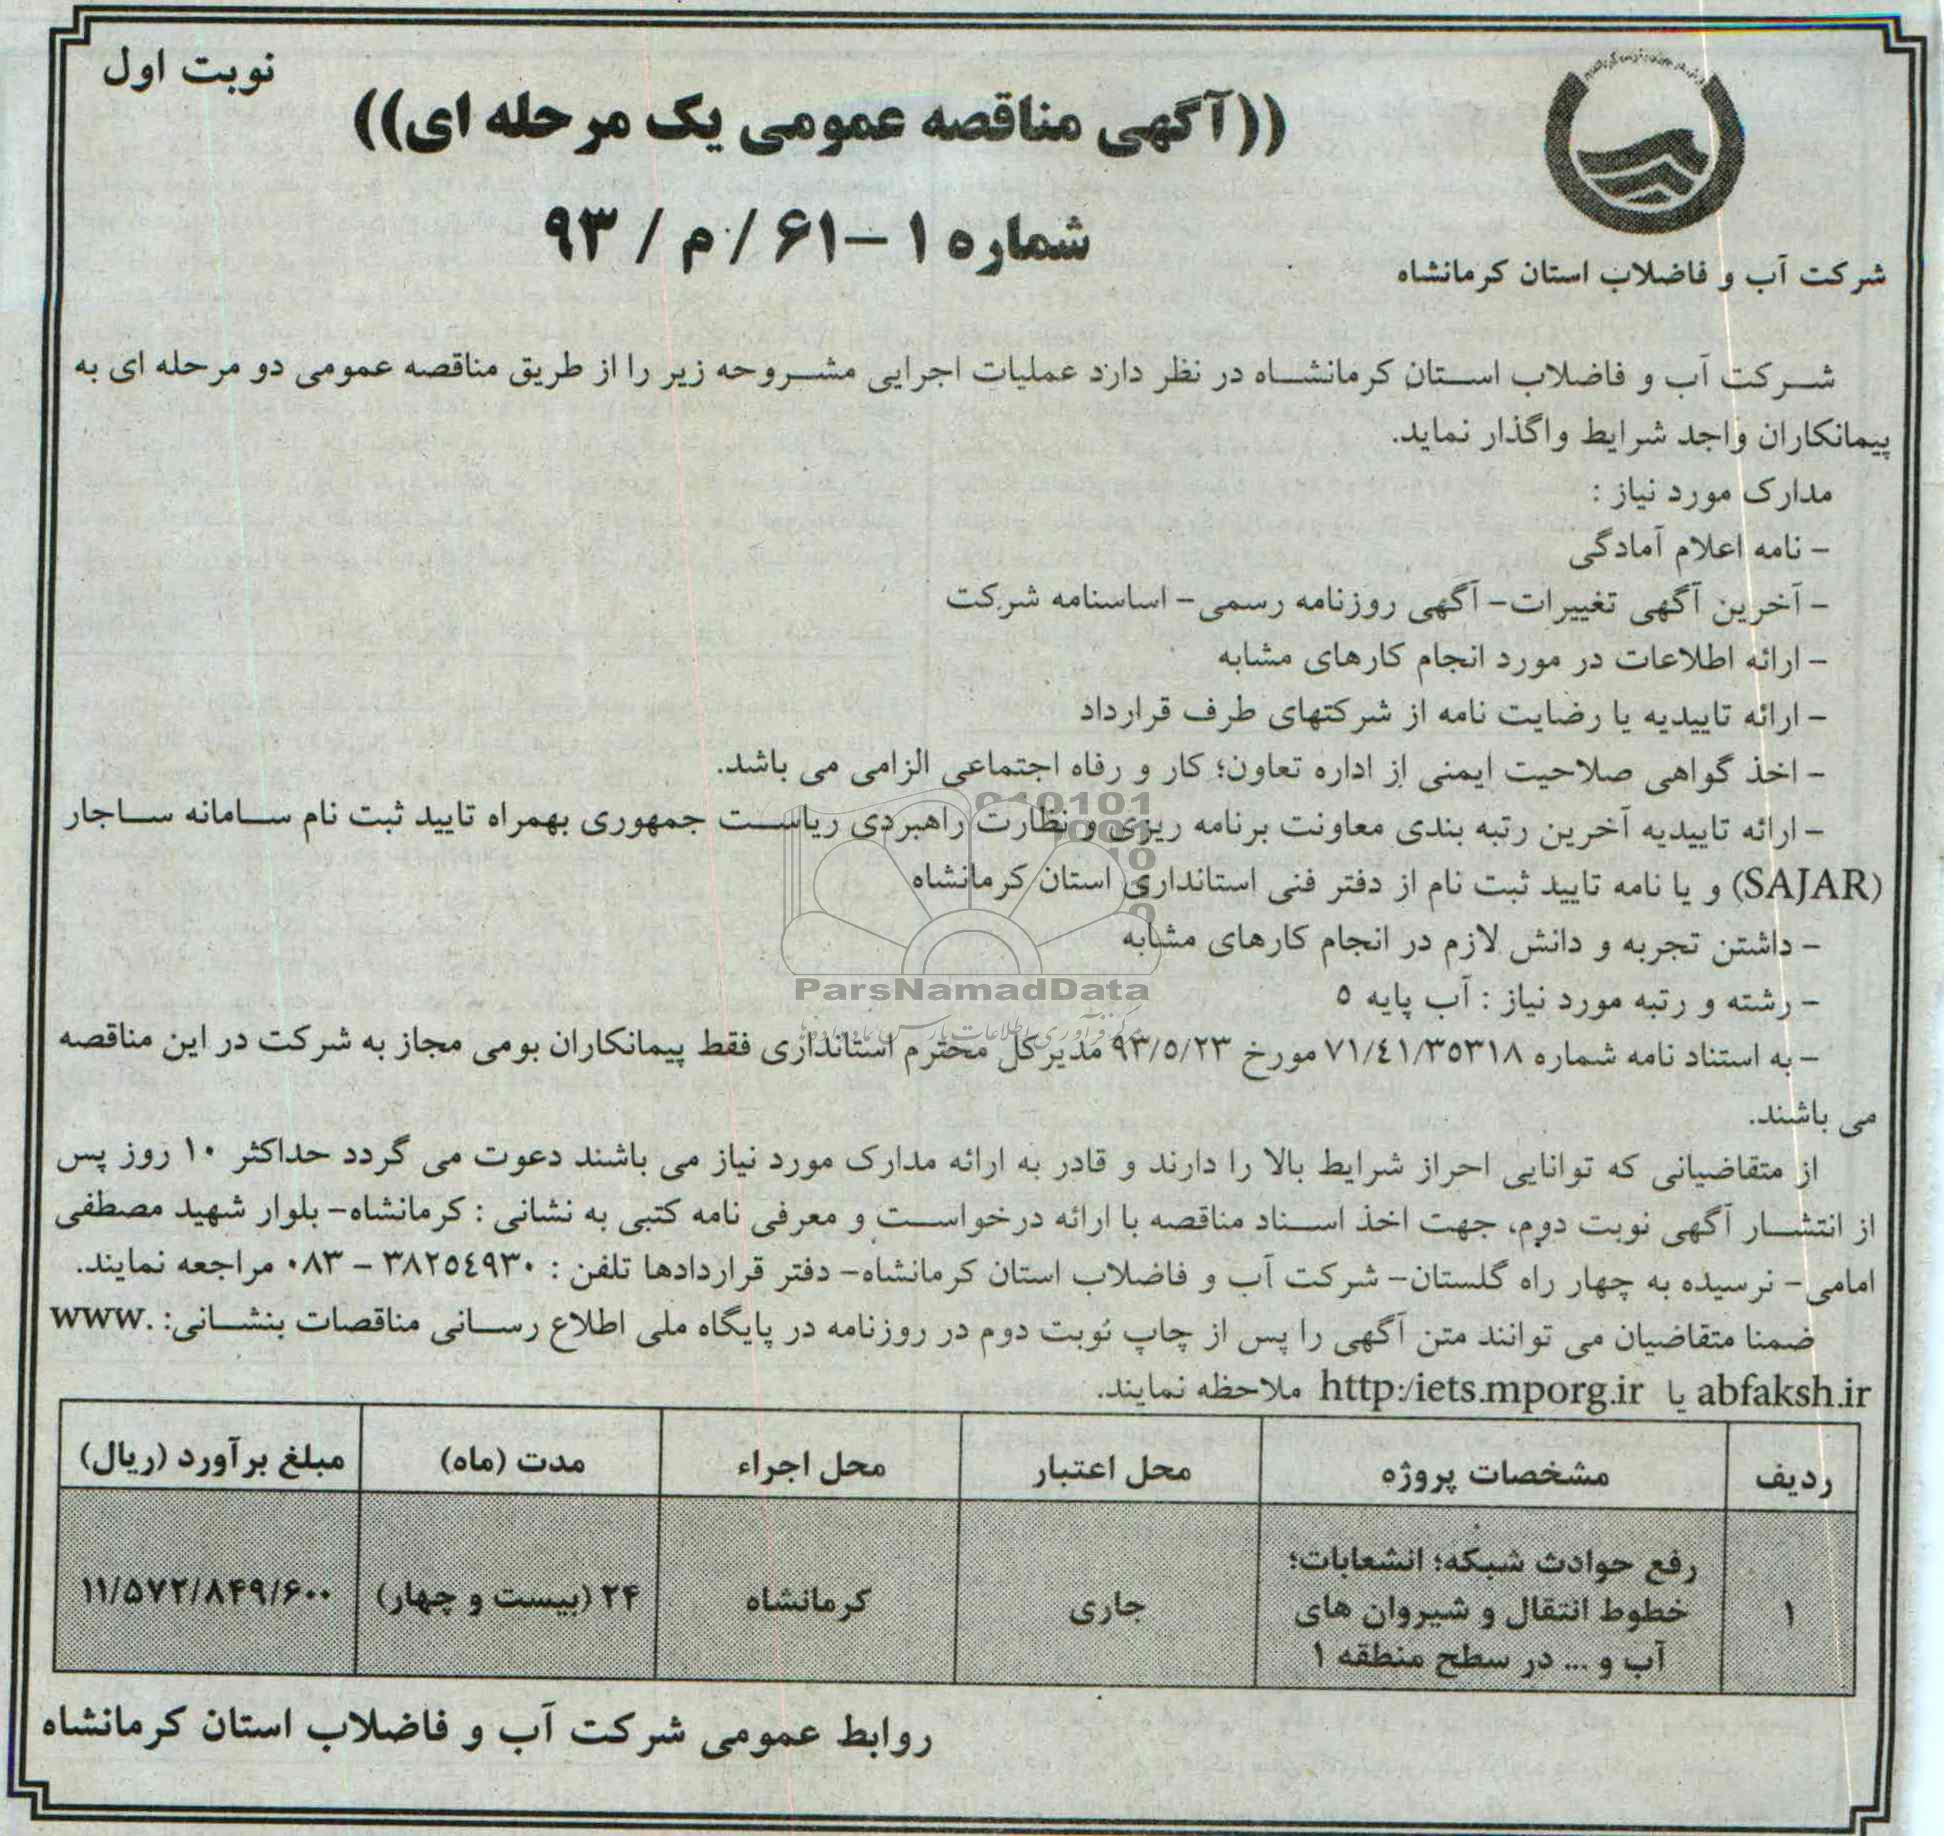 نوبت اول
((آگهی مناقصه عمومی یک مرحله ای))
شماره ۱ -۶۱ / م / ۹۳
شرکت آب و فاضلاب استان کرمانشاه
شرکت آب و فاضلاب استان کرمانشاه در نظر دارد عملیات اجرایی مشروحه زیر را از طریق مناقصه عمومی دو مرحله ای به
پیمانکاران واجد شرایط واگذار نماید.
مدارک مورد نیاز :
- نامه اعلام آمادگی
- آخرین آگهی تغییرات- آگهی روزنامه رسمی- اساسنامه شرکت
- ارائه اطلاعات در مورد انجام کارهای مشابه
- ارائه تاییدیه یا رضایت نامه از شرکتهای طرف قرارداد
- اخذ گواهی صلاحیت ایمنی از اداره تعاون؛ کار و رفاه اجتماعی الزامی می باشد.
- ارائه تاییدیه آخرین رتبه بندی معاونت برنامه ریزی و نظارت راهبردی ریاست جمهوری بهمراه تایید ثبت نام سامانه ساجار
(SAJAR) و یا نامه تایید ثبت نام از دفتر فنی استانداری استان کرمانشاه
- داشتن تجربه و دانش لازم در انجام کارهای مشابه
ParsNamadData
- رشته و رتبه مورد نیاز : آب پایه ۵
- به استناد نامه شماره ۷۱/۴۱/۳۵۳۱۸ مورخ ۹۳/۵/۲۳ مدیرکل محترم استانداری فقط پیمانکاران بومی مجاز به شرکت در این مناقصه
می باشند.
از متقاضیانی که توانایی احراز شرایط بالا را دارند و قادر به ارائه مدارک مورد نیاز می باشند دعوت می گردد حداکثر ۱۰ روز پس
از انتشار آگهی نوبت دوم، جهت اخذ اسناد مناقصه با ارائه درخواست و معرفی نامه کتبی به نشانی : کرمانشاه- بلوار شهید مصطفی
امامی- نرسیده به چهار راه گلستان- شرکت آب و فاضلاب استان کرمانشاه- دفتر قراردادها تلفن : ۳۸۲۵۴۹۳۰ - ۰۸۳ مراجعه نمایند.
ضمنا متقاضیان می توانند متن آگهی را پس از چاپ نوبت دوم در روزنامه در پایگاه ملی اطلاع رسانی مناقصات بنشانی: www.
abfaksh.ir یا http:/iets.mporg.ir ملاحظه نمایند.
ردیف مشخصات پروژه محل اعتبار محل اجراء مدت (ماه) مبلغ برآورد (ریال)
۱ رفع حوادث شبکه؛ انشعابات؛ خطوط انتقال و شیروان های آب و ... در سطح منطقه ۱ جاری کرمانشاه ۲۴ (بیست و چهار) ۱۱/۵۷۲/۸۴۹/۶۰۰
روابط عمومی شرکت آب و فاضلاب استان کرمانشاه